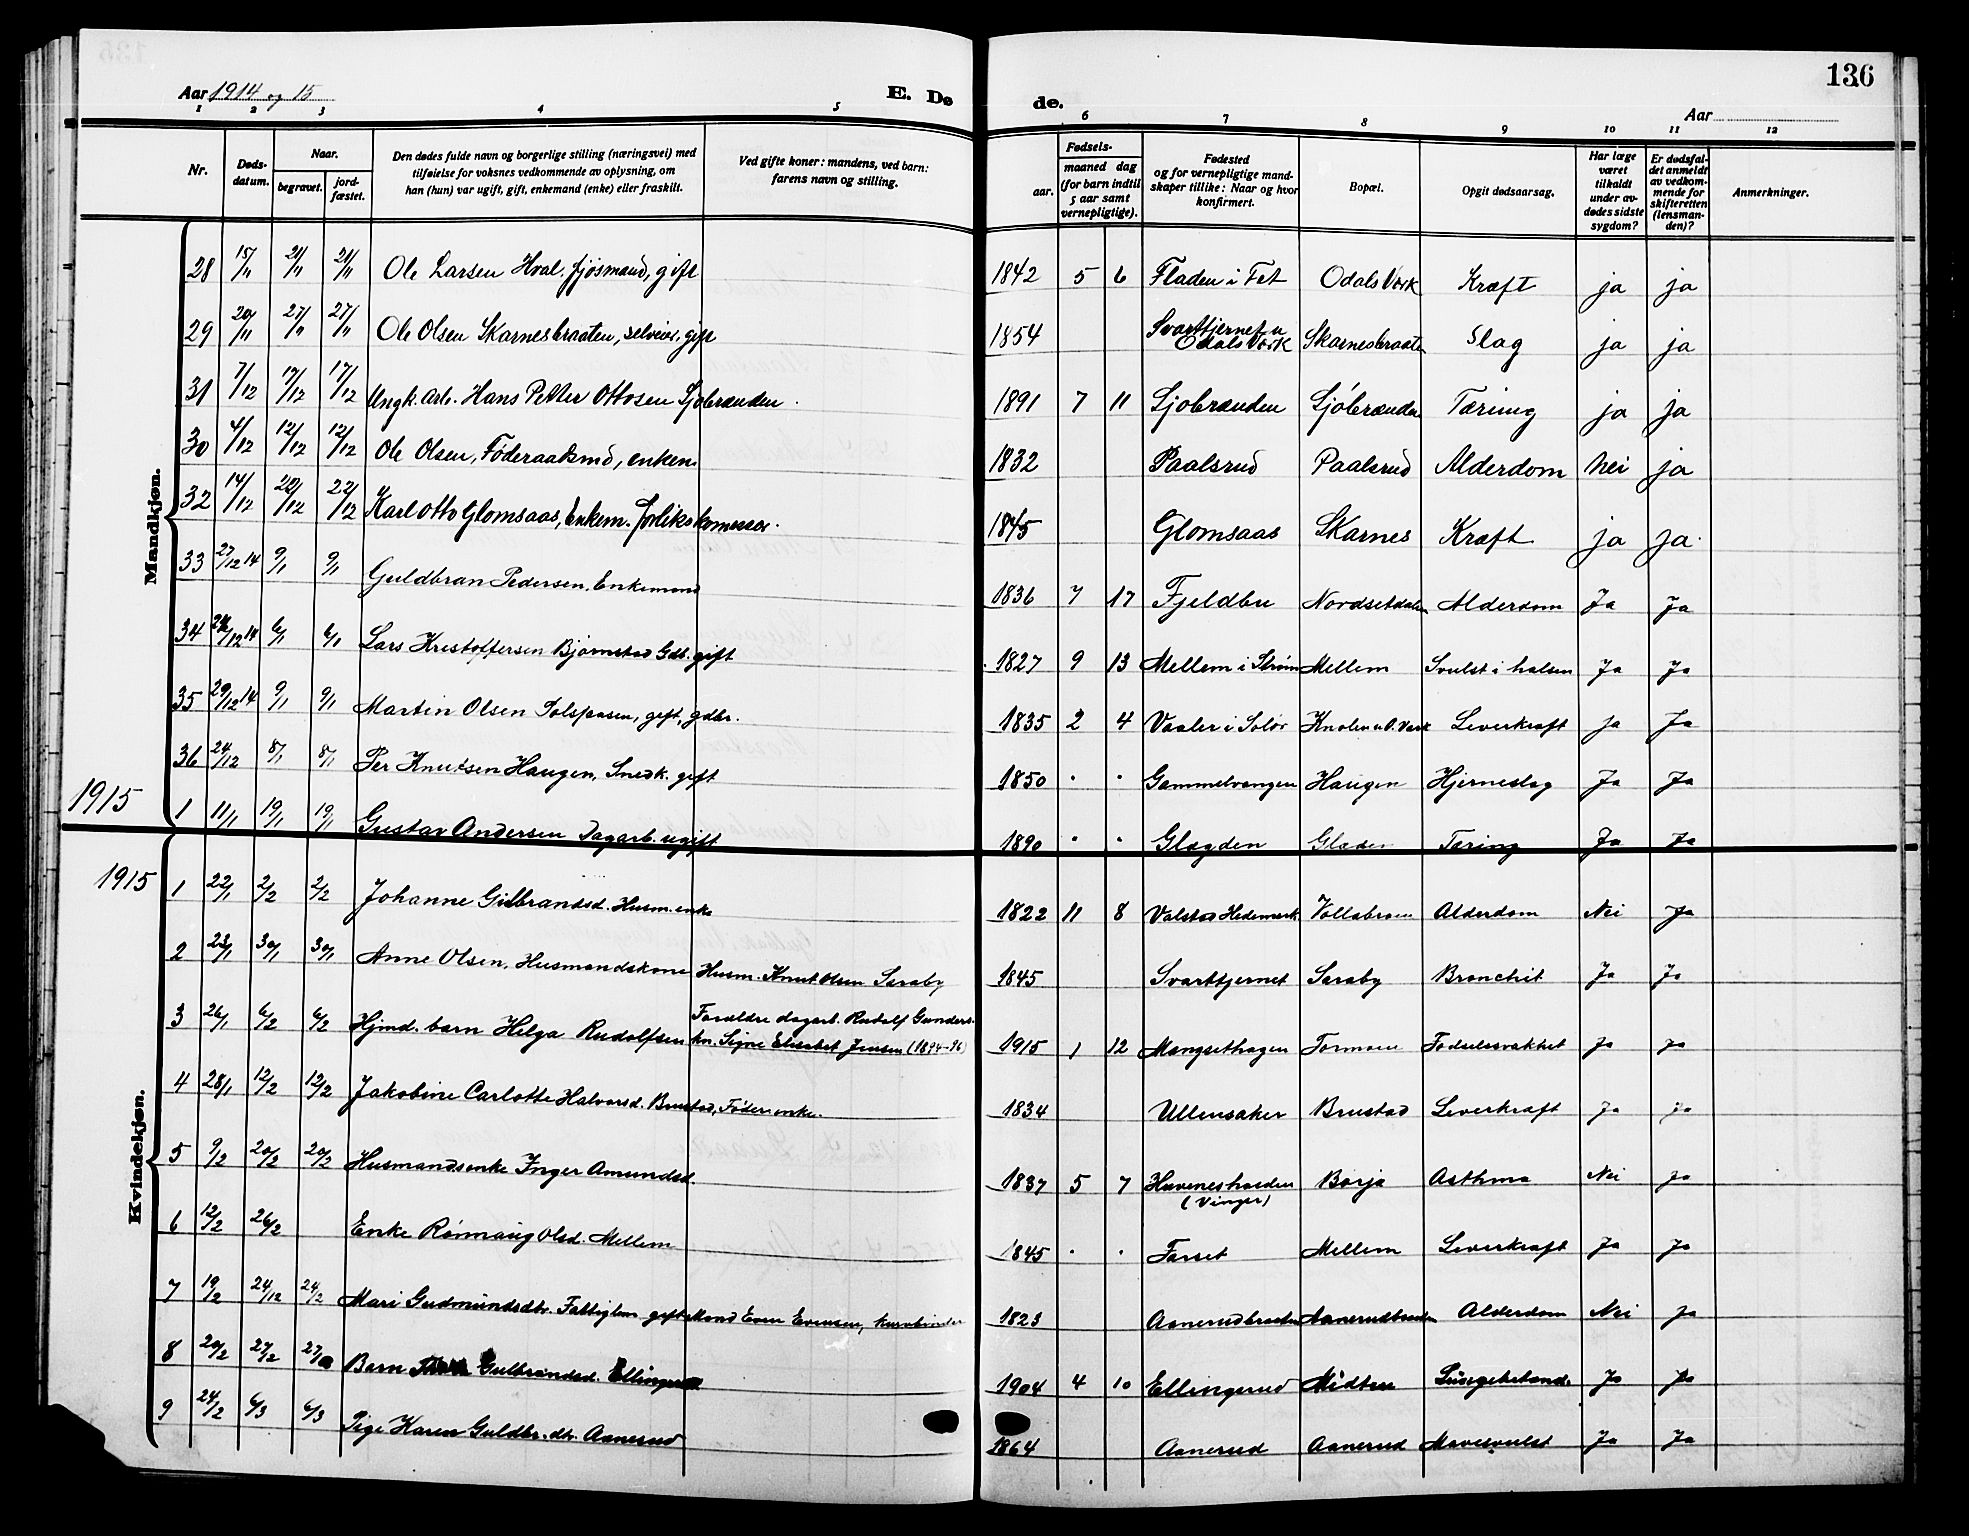 136
Aar 1914 og 15
E. Dø
de.
Aar
1 2 3 4 5 6 7 8 9 10 11 12
Nr.
Døds-
datum.
Naar.
begravet.
jord-
fæstet.
Den dødes fulde navn og borgerlige stilling (næringsvei) med
tilføielse for voksnes vedkommende av oplysning, om
han (hun) var ugift, gift, enkemand (enke) eller fraskilt.
Ved gifte koner: mandens, ved barn:
farens navn og stilling.
Fødsels-
aar.
maaned dag
(for barn indtil
5 aar samt
vernepligtige).
Fødested
og for vernepligtige mand-
skaper tillike: Naar og hvor
konfirmert.
Bopæl.
Opgit dødsaarsag.
Har læge
været
tilkaldt
under av-
dødes sidste
sygdom?
Er dødsfal-
det anmeldt
av vedkom-
mende for
skifteretten
(lensman-
den)?
Anmerkninger.
Mandkjøn.
28 15/11 21/11 21/11 Ole Larsen Hval. fjøsmand, gift 1842 5 6 Fladen i Fet Odals Værk Kræft ja ja
29 20/11 27/11 27/11 Ole Olsen Skarnesbraaten, selveier, gift 1854 Svarttjernet u Odals Værk Skarnesbraaten Slag ja ja
31 7/12 17/12 17/12 Ungk. Arb. Hans Petter Ottosen Sjøbrænden. 1891 7 11 Sjøbrænden Sjøbrænden Tæring ja ja
30 4/12 12/12 12/12 Ole Olsen, Føderaadsmd, enkem. 1832 Paalsrud Paalsrud Alderdom Nei ja
32 14/12 22/12 22/12 Karl Otto Glomsaas, Enkem. forlikskommissær. 1845 Glomsaas Skarnes Kræft ja ja
33 27/12 14 9/1 9/1 Guldbran Pedersen, Enkemand 1836 7 17 Fjeldbu Nordsetdalen Alderdom Ja Ja
34 24/12 14 6/1 6/1 Lars Kristoffersen Bjørnstad Gdb. gift 1827 9 13 Mellem i Strøm Mellem Svulst i halsen Ja Ja
35 29/12 14 9/1 9/1 Martin Olsen Solspasen, gift, gdbr. 1835 2 4 Vaaler i Solør Knolen u O. Værk Leverkræft ja Ja
36 24/12 8/1 8/1 Per Knutsen Haugen, Snedk. gift 1850 " " Gammelvangen Haugen Hjerneslag Ja Ja
1915
1 11/1 19/1 19/1 Gustav Andersen Dagarb. ugift 1890 " " Glægden Glæden Tæring Ja Ja
1915
Kvindekjøn.
1 22/1 2/2 2/2 Johanne Gulbrandsd. Husm. enke 1822 11 8 Valstad Hedemark Alderdom Nei Ja
2 23/1 30/1 30/1 Anne Olsen, Husmandskone Husm. Knut Olsen Saraby 1845 Svarttjernet Saraby Bronchit Ja Ja
3 26/1 6/2 6/2 Hjmd. barn Helga Rudolfsen Forældre dagarb. Rudolf Gunders-
kn. Signe Elisabet Jensen (1894-96) 1915 1 12 Mangsethagen Tormoen Fødselssvakhet Ja Ja
4 28/1 12/2 12/2 Jakobine Carlotte Halvorsd. Brustad, Føder. enke. 1834 Ullensaker Brustad Leverkræft Ja Ja
5 9/2 20/2 20/2 Husmandsenke Inger Amundsd. 1837 5 7 (Vinger) Borja Asthma Nei Ja
6 12/2 26/2 Enke Rønnaug Olsd. Mellem 1845 " " Farset Mellem Leverkræft Ja Ja
7 19/2 24/12 24/2 Mari Gudmundsdtr. Fattiglem gift Mand Even Evensen, kurvbinder 1823 Aanerudbraaten Aanerudbraaten Alderdom Nei Ja
8 20/2 27/2 Barn Gulbrandsd. Ellingerud 1904 4 10 Ellingerud Midtun Ja Ja
9 24/2 6/3 6/3 Pige Karen Guldbr. dtr. Aanerud 1864 Aanerud Aanerud Mavesvulst Ja Ja